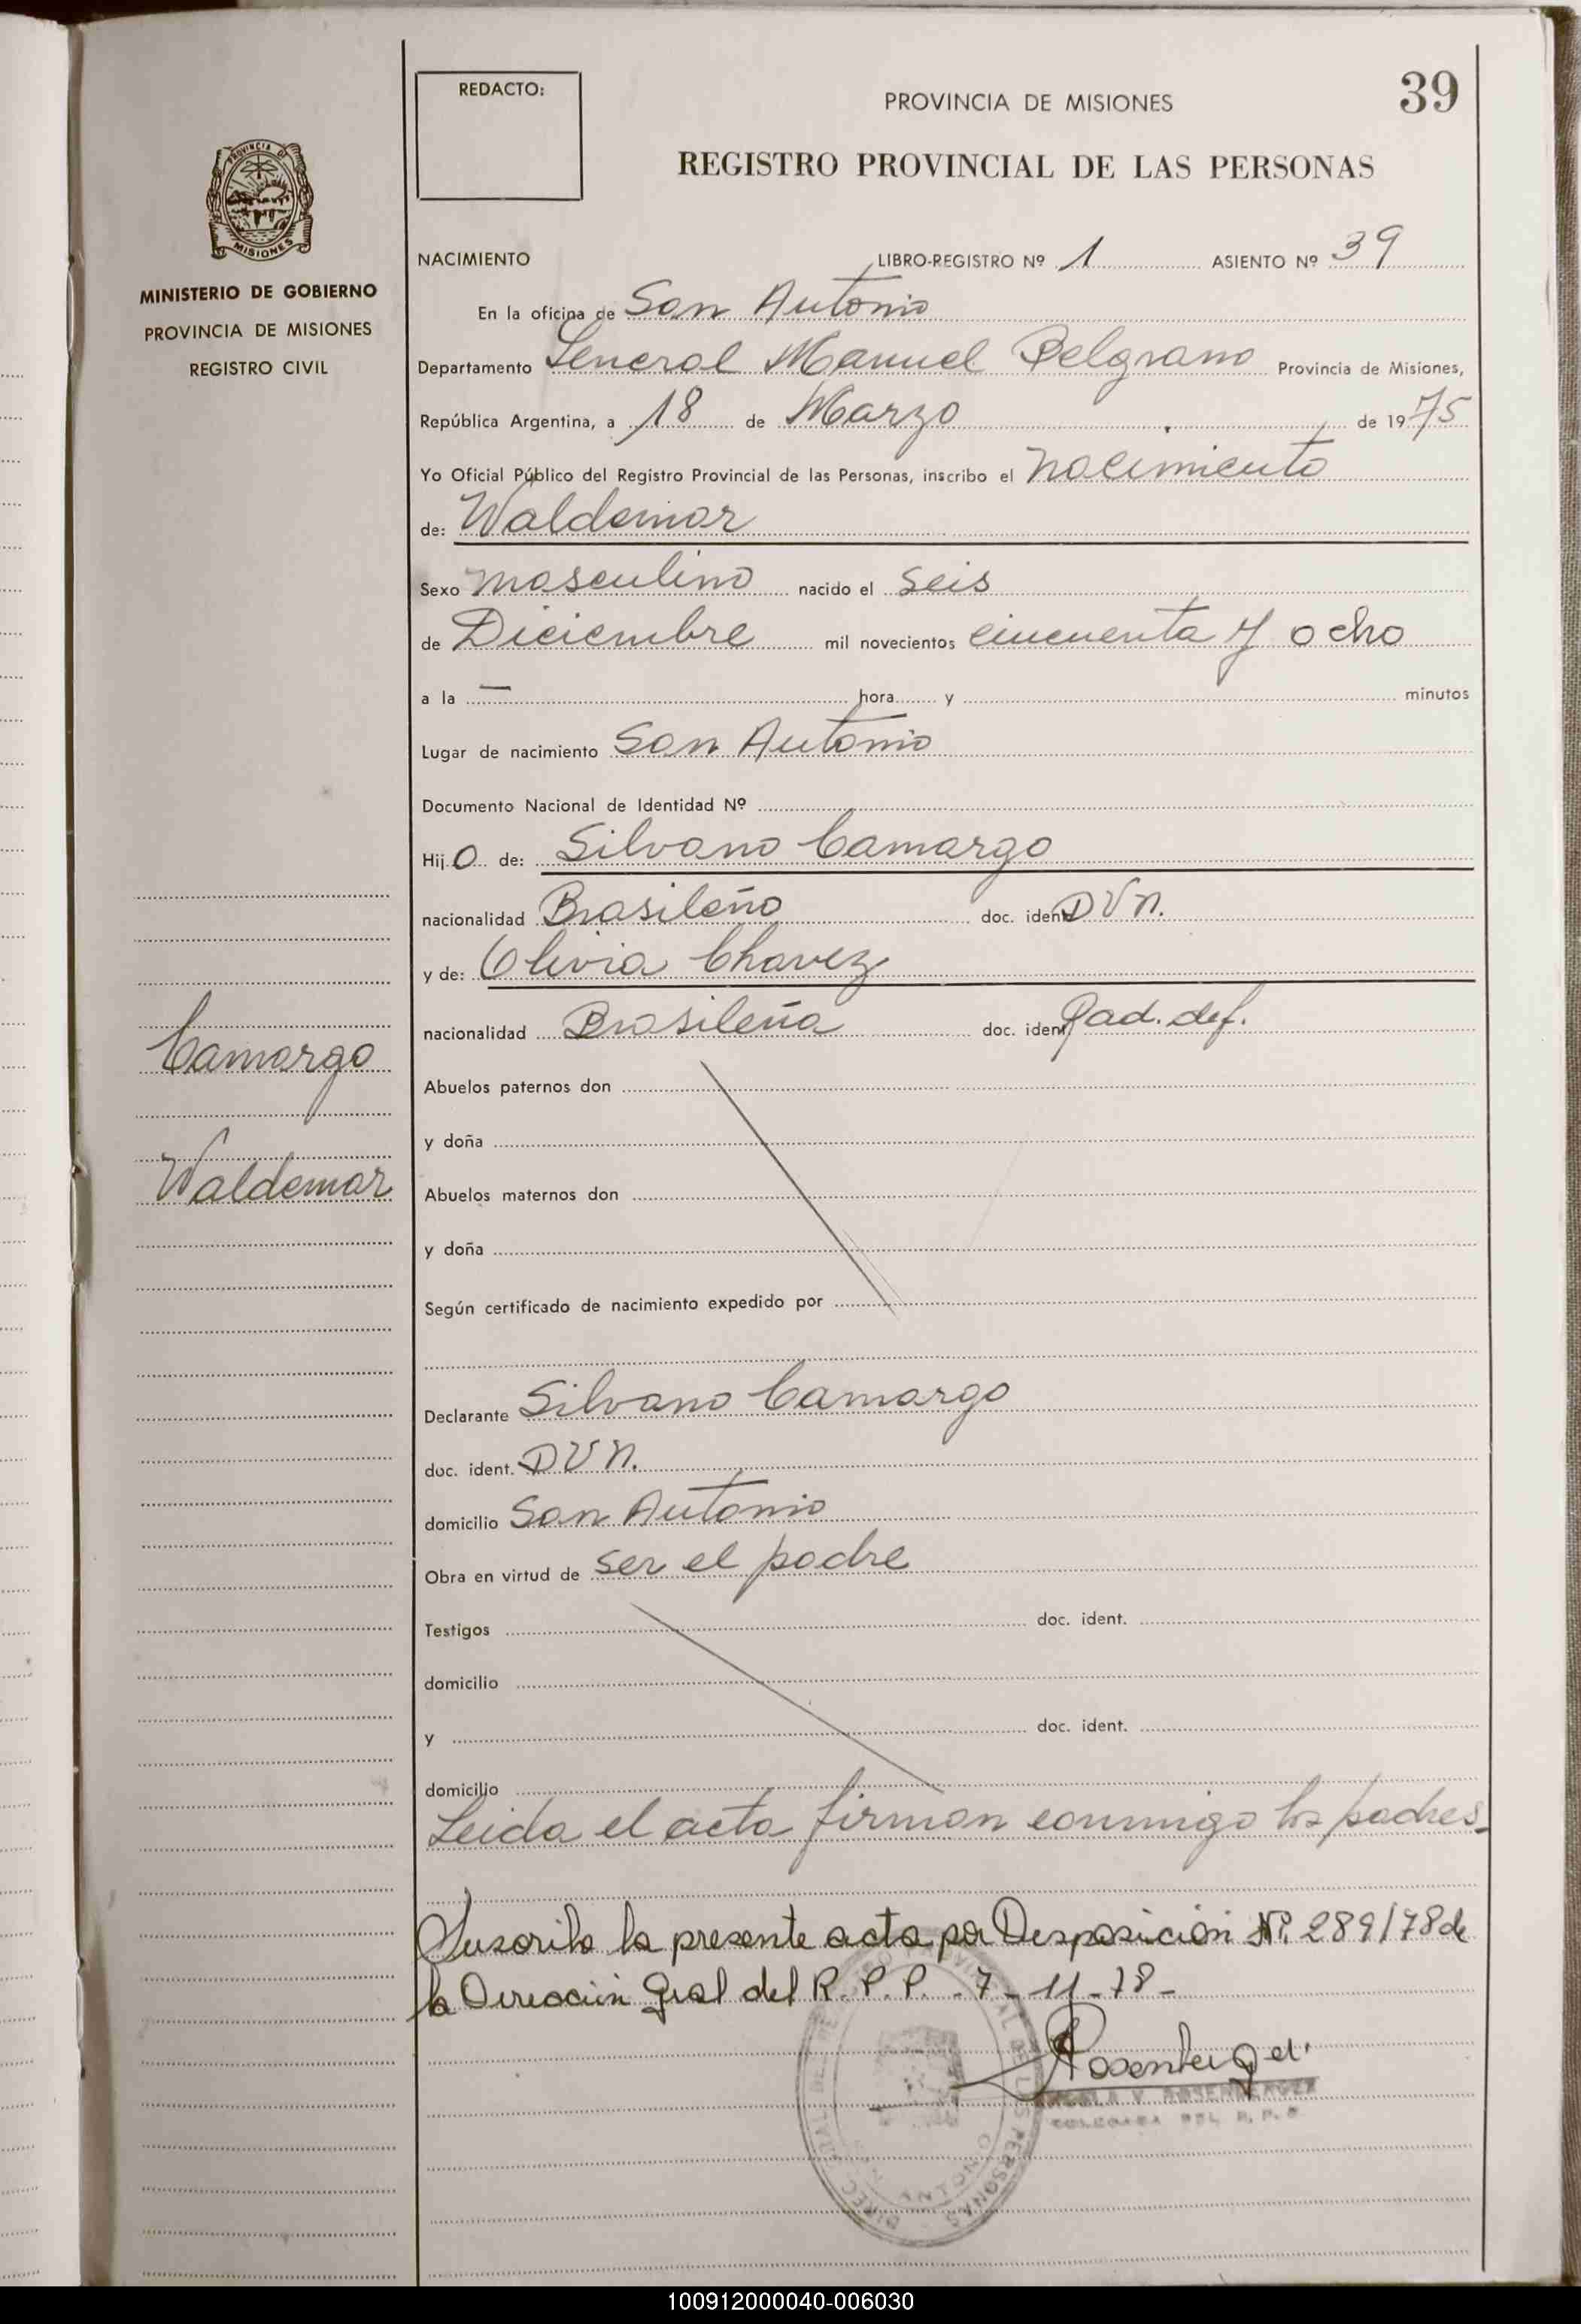 REDACTO:
PROVINCIA DE MISIONES
39
REGISTRO PROVINCIAL DE LAS PERSONAS
PROVINCIA DE
MISIONES
MINISTERIO DE GOBIERNO
PROVINCIA DE MISIONES
REGISTRO CIVIL
NACIMIENTO LIBRO-REGISTRO Nº 1 ASIENTO Nº 39
En la oficina de San Antonio
Departamento General Manuel Belgrano Provincia de Misiones,
República Argentina, a 18 de Marzo de 1975
Yo Oficial Público del Registro Provincial de las Personas, inscribo el nacimiento
de: Waldemar
Sexo masculino nacido el seis
de Diciembre mil novecientos cincuenta y ocho
a la — hora y minutos
Lugar de nacimiento San Antonio
Documento Nacional de Identidad Nº
Hijo de: Silvano Camargo
nacionalidad Brasileño doc. ident. D V N.
y de: Olivia Chavez
nacionalidad Brasileña doc. ident. Pad. def.
Camargo
Waldemar
Abuelos paternos don
y doña
Abuelos maternos don
y doña
Según certificado de nacimiento expedido por
Declarante Silvano Camargo
doc. ident. D V N.
domicilio San Antonio
Obra en virtud de ser el padre
Testigos doc. ident.
domicilio
y doc. ident.
domicilio
Leida el acta firman conmigo los padres.
Suscribo la presente acta por Desposición Nº 289/78 de
la Dirección Gral del R. P. P. 7-11-78-
Rosemberger
DEL R. P. P.
100912000040-006030